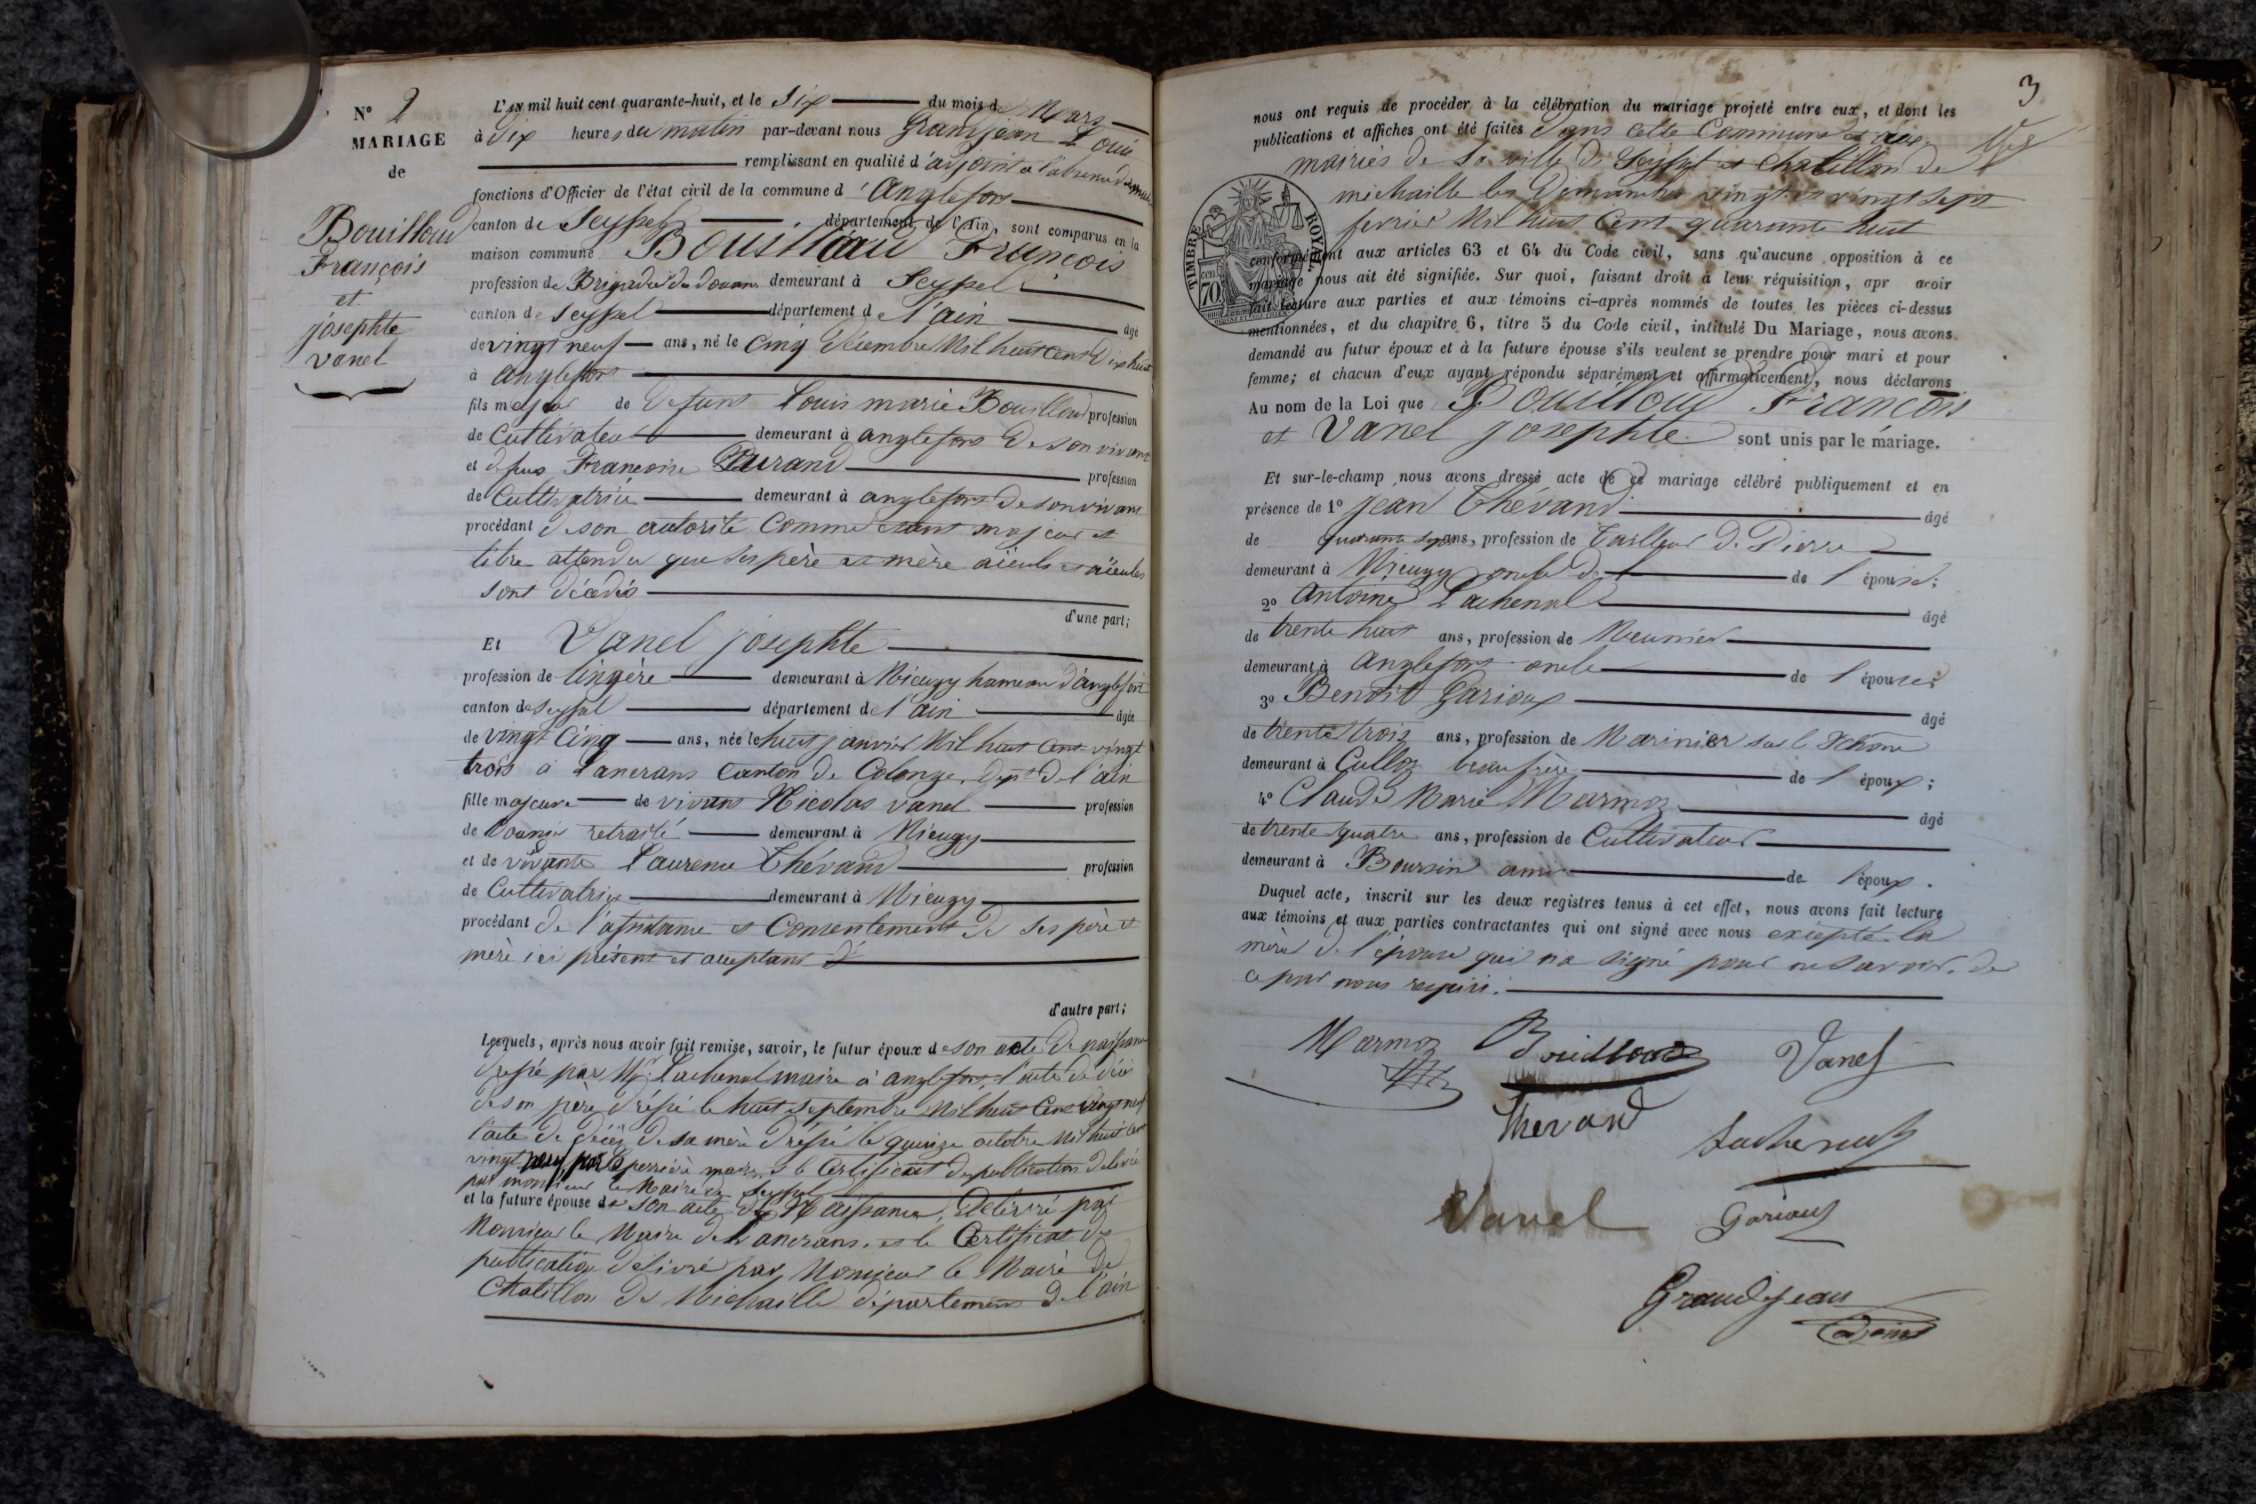 N° 2
MARIAGE
de
Bouilloud
François
et
josephte
vanel
L'an mil huit cent quarante-huit, et le Six du mois de Mars
à Dix heures du matin par-devant nous Grandjean Louis
remplissant en qualité d'adjoint à l'absence du maire
fonctions d'Officier de l'état civil de la commune d'anglefort
canton de Seyssel département de l'Ain, sont comparus en la
maison commune Bouilloud François
profession de Brigadier des douanes demeurant à Seyssel
canton de Seyssel département de l'ain âgé
de vingt neuf ans, né le Cinq Décembre Mil huit Cent Dix huit
à anglefort
fils majeur de Defunt Louis marie Bouilloud profession
de Cultivateur demeurant à anglefort De son vivant
et defunte Francoise Durand profession
de Cultivatrice demeurant à anglefort De son vivant
procédant De son autorité Comme étant majeur et
libre attendu que Ses père et mère aïeuls et aïeules
sont décédés
d'une part;
Et Vanel josephte
profession de lingère demeurant à Mieugy hameau d'anglefort
canton de Seyssel département de l'ain âgée
de vingt Cinq ans, née le huit janvier Mil huit Cent vingt
trois à Lancrans Canton de Colonge, Dept De l'ain
fille majeure de vivant Nicolas vanel profession
de Douanier retraité demeurant à Mieugy
et de vivante Laurence Thévand profession
de Cultivatrice demeurant à Mieugy
procédant de l'assistance et Consentement De Ses père et
mère ici présent et acceptant
d'autre part;
Lesquels, après nous avoir fait remise, savoir, le futur époux de son acte De naissance
Dressé par Mr Lachenal maire à anglefort, l'acte De décès
de son père Dréssé le huit Septembre Mil huit Cent vingt neuf
l'acte De décès De sa mère Dréssé le quinze octobre Mil huit Cent
vingt neuf, par perrière maire, et le Certificat De publication Délivré
par monsieur le Maire de Seyssel
et la future épouse de son acte De Naissance, Délivré par
Monsieur le Maire de Lancrans, et le Certificat De
publication Délivré par Monsieur le Maire De
Chatillon De Michaille département De l'ain
3
nous ont requis de procéder à la célébration du mariage projeté entre eux, et dont les
publications et affiches ont été faites Dans Cette Commune et aux
mairies de la ville De Seyssel et Chatillon de
michaille les Dimanches vingt et vingt sept
fevrier Mil huit Cent quarante huit
TIMBRE ROYAL
70
conformément aux articles 63 et 64 du Code civil, sans qu'aucune opposition à ce
mariage nous ait été signifiée. Sur quoi, faisant droit à leur réquisition, apr avoir
fait lecture aux parties et aux témoins ci-après nommés de toutes les pièces ci-dessus
mentionnées, et du chapitre 6, titre 5 du Code civil, intitulé Du Mariage, nous avons
demandé au futur époux et à la future épouse s'ils veulent se prendre pour mari et pour
femme; et chacun d'eux ayant répondu séparément et affirmativement, nous déclarons
Au nom de la Loi que Bouilloud François
et Vanel josephte sont unis par le mariage.
Et sur-le-champ nous avons dressé acte de ce mariage célébré publiquement et en
présence de 1° jean Thévand âgé
de quarante sept ans, profession de Tailleur De Pierre
demeurant à Mieugy oncle de de l'épouse;
2° Antoine Lachenal âgé
de trente huit ans, profession de Meunier
demeurant à anglefort oncle de l'épouse;
3° Benoit Garioux âgé
de trente trois ans, profession de Marinier sur le Rhône
demeurant à Culloz beau frère de l'époux;
4° Claude Marie Marmoz âgé
de trente quatre ans, profession de Cultivateur
demeurant à Boursin ami de l'époux.
Duquel acte, inscrit sur les deux registres tenus à cet effet, nous avons fait lecture
aux témoins et aux parties contractantes qui ont signé avec nous excepté la
mère de l'épouse qui n'a signé pour ne savoir. de
ce par nous requise.
Marmoz Bouilloud Vanel
Thevand
Lachenal
Vanel Garioux
Grandjean
adjoint